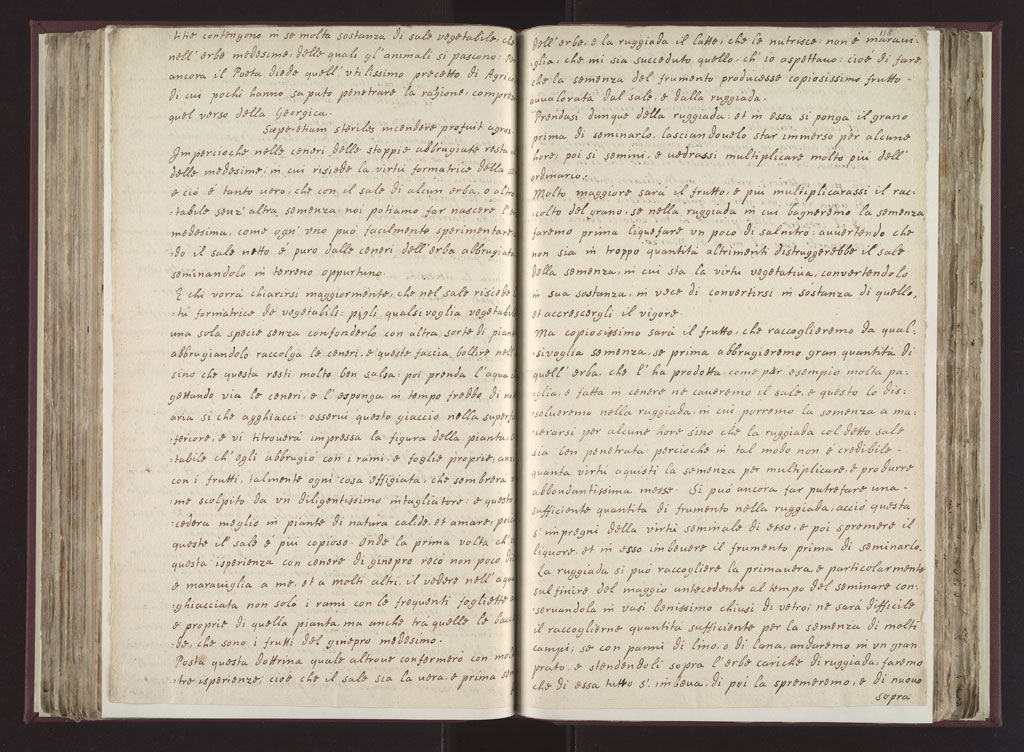 titie contengono in se molta sostanza di sale vegetabile, che
nell' erbe medesime, delle quali gl' animali si pascono:
ancora il Poeta diede quell' utilissimo precetto di Agric
di cui pochi hanno saputo penetrare la ragione, compres
quel verso della Georgica.
Sæpe etiam steriles incendere profuit agros.
Impercioche nelle ceneri delle stoppie abbrugiate resta il
delle medesime, in cui risiede la virtù formatrice della
e ciò è tanto uero, che con il sale di alcun erba, o altro
tabile senz' altra semenza, noi potiamo far nascere l'e
medesima, come ogn' uno può facilmente sperimentare
do il sale netto e puro dalle ceneri dell' erba abbrugiata
seminandolo in terreno oppurtuno.
E chi vorrà chiarirsi maggiormente, che nel sale risiede
tù formatrice de vegetabili: pigli qualsivoglia vegetabi
una sola specie senza confonderlo con altra sorte di pian
abbrugiandolo raccolga le ceneri, e queste faccia bollire nell
sino che questa resti molto ben salsa: poi prenda l'aqua
gettando via le ceneri, e l'esponga in tempo freddo di
aria si che agghiacci: osserui questo giaccio nella superf
teriore, e vi titrouerà impressa la figura della pianta,
tabile ch' egli abbrugiò con i rami, e foglie proprie, anz
con i frutti, talmente ogni cosa effigiata, che sembrerà
me scolpito da vn diligentissimo intagliatore: e questo
cederà meglio in piante di natura calide, et amare, poic
queste il sale è più copioso. Onde la prima volta ch'
questa isperienza con cenere di ginepro recò non poco di
e marauiglia a me, et a molti altri, il vedere nell' aqua
ghiacciata non solo i rami con le frequenti fogliette
e proprie di quella pianta, ma anche trà quelle le bac
de, che sono i frutti del ginepro medesimo.
Posta questa dottrina quale altroue confermerò con mol
tre isperienze; cioè che il sale sia la uera, e prima
118
dell' erbe, e la ruggiada il latte, che le nutrisce: non è maraui-
glia, che mi sia succeduto quello, ch' io aspettauo: cioè di fare,
che la semenza del frumento producesse copiosissimo frutto
auualorata dal sale, e dalla ruggiada.
Prendasi dunque della ruggiada: et in essa si ponga il grano
prima di seminarlo, lasciandouelo star immerso per alcune
hore; poi si semini, e uedrassi multiplicare molto più dell'
ordinario.
Molto maggiore sarà il frutto, e più multiplicarassi il rac-
colto del grano, se nella ruggiada in cui bagneremo la semenza
faremo prima liquefare vn poco di salnitro: auuertendo che
non sia in troppo quantità altrimenti distruggerebbe il sale
della semenza, in cui sta la virtù vegetatiua, convertendolo
in sua sostanza, in vece di convertirsi in sostanza di quello,
et accrescergli il vigore.
Ma copiosissimo sarà il frutto, che raccoglieremo da qual-
sivoglia semenza, se prima abbrugieremo gran quantità di
quell' erba, che l' hà prodotta: come per esempio molta pa-
glia, e fatta in cenere ne caueremo il sale, e questo lo dis-
solueremo nella ruggiada, in cui porremo la semenza a ma-
cerarsi per alcune hore sino che la ruggiada col detto sale
sia ben penetrata: percioche in tal modo non è credibile
quanta virtù aquisti la semenza per multiplicare, e produrre
abbondantissima messe. Si può ancora far putrefare una
sufficiente quantità di frumento nella ruggiada, acciò questa
s' impregni della virtù seminale di esso, e poi spremere il
liquore, et in esso imbeuere il frumento prima di seminarlo.
La ruggiada si può raccogliere la primauera, e particolarmente
sul finire del maggio antecedente al tempo del seminare con-
seruandola in vasi benissimo chiusi di vetro; ne sarà difficile
il raccoglierne quantità sufficiente per la semenza di molti
campi; se con panni di lino, o di lana, andaremo in vn gran
prato, e stendendoli sopra l'erbe cariche di ruggiada, faremo
che di essa tutto s' imbeua, di poi la spremeremo, e di nuouo
sopra